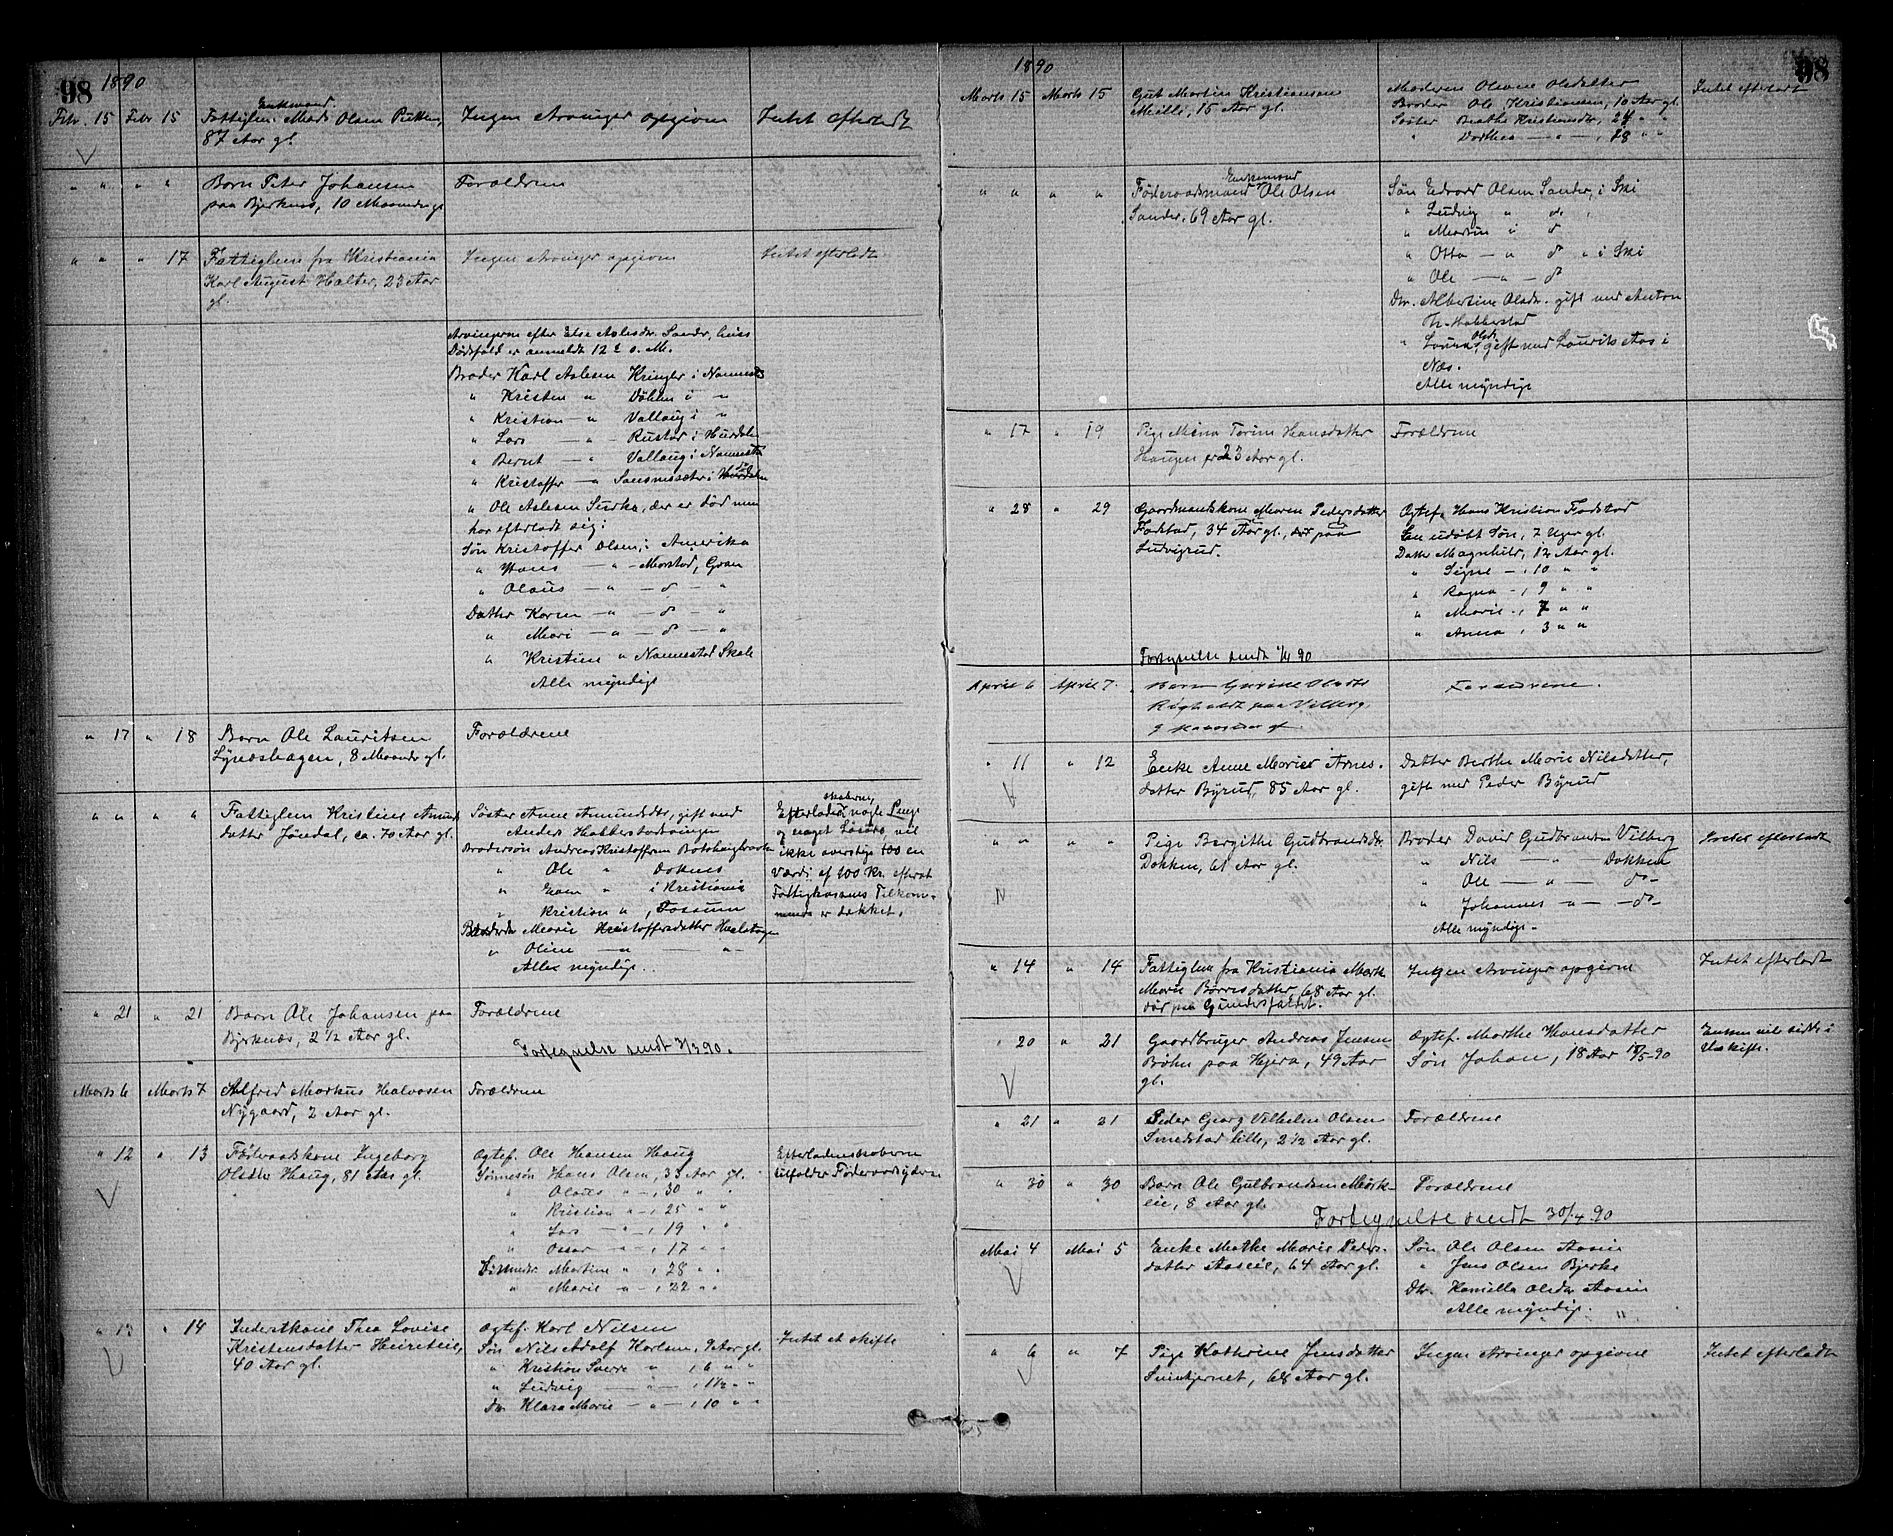 98
1890
Febr. 15 Febr 15 Fattiglem Enkemand Mads Olsen
87 Aar gl.
Ingen Arvinger opgivne
Intet efterladt
" " " " Barn Peter Johansen
paa Bjerknes, 10 Maaneder gl
Forældrene
" " " 17 Fattiglem fra Kristiania
Karl August Halter, 23 Aar
gl.
Ingen Arvinger opgivne
Intet efterladt
Arvingerne efter Else Aslesdr. Sander, hvis
Dødsfald er anmeldt 12 d. M.
Broder Karl Aslesen Kringler i Nannestad
" Kristen " Døhlen i "
" Kristian " Vallaug i "
" Lars — " — Rustad i Hurdalen
" Bernt — " Vallaug i Nannestad
" Kristoffer — "
" Ole Aslesen, der er død men
har efterladt sig:
Søn Kristoffer Olsen, i Amerika
" Hans — " — Morstad, Gran
" Olaus — " — d — "
Datter Karen — " — d — "
" Mari — " — d — "
" Kristine " Nannestad
Alle myndige
" 17 " 18 Barn Ole Lauritsen
8 Maaneder gl.
Forældrene
" " " " Fattiglem Kristine Amunds
datter Jøndal, ca. 70 Aar gl.
Søster Anne Amundsdtr, gift med
Anders
Brodersøn Andreas Kristoffersen
" Ole "
" " i Kristiania
" Kristian ", Fossum
Marie Kristoffersdatter
" Oline — " — "
Alle myndige.
Efterlader nogle Penge
og noget Løsøre, vil
ikke overstige 100 en
Værdi af 100 Kr. efterat
Fattigkassens Tilkom-
mende er dækket.
" 21 " 21 Barn Ole Johansen paa
Bjerknæs, 2 1/2 Aar gl.
Forældrene
Fortegnelse sendt 3/3 90.
Marts 6 Marts 7 Alfred Markus Halvorsen
Nygaard, 2 Aar gl.
Forældrene
" 12 " 13 Føderaadskone Ingeborg
Olsdtr Haug, 81 Aar gl.
Ægtef. Ole Hansen Haug
Sønnesøn Hans Olsen, 33 Aar gl.
" Olaus " — , 30 " "
" Kristian " — , 25 " "
" Lars — " , 19 " "
" Oscar — " — , 17 " "
Sønnedtr. Martine " , 28 " "
" Marie " — , 22 " "
tilfalder Føderaadsyderen
" 13 " 14 Inderstkone Thea Lovise
Kristensdatter
40 Aar gl.
Ægtef. Karl Nilsen
Søn Nils Adolf Karlsen, 9 Aar gl.
" Kristian " , 6 " "
" Ludvig — " — , 1 1/2 " "
Dtr. Klara Marie — " — , 10 " "
Intet at skifte
98
1890
Marts 15 Marts 15 Gut Martin Kristiansen
15 Aar gl.
Moderen Oliane Olsdatter
Broder Ole Kristiansen, 10 Aar gl.
Søster Berthe Kristiansdtr, 24 " "
" Dorthea — " — , 18 " "
Intet efterladt
" " " " Føderaadsmand Enkemand Ole Olsen
Sander, 69 Aar gl.
Søn Edvard Olsen Sander, i Ski
" Ludvig " d
" Martin " d
" Otto — " d " i Ski
" Ole — " — d
Dtr. Albertine Olsdr. gift med Anton
Th. Habberstad
" Laura Olsdr, gift med Laurits Aas i
Næs.
Alle myndige
" 17 " 19 Pige Mina Torine Hansdatter
Haugen 23 Aar gl.
Forældrene
" 28 " 29 Gaardmandskone Maren Pedersdatter
Fodstad, 34 Aar gl., dør paa
Ludvigrud.
Ægtef. Hans Kristian Fodstad
En udøbt Søn, 7 Uger gl.
Datter Magnhild, 12 Aar gl.
" Signe — , 10 " "
" Ragna — , 9 " "
" Marie — , 7 " "
" Anna , 3 " "
Fortegnelse sendt 1/4 90
April 6 April 7. Barn
paa Vilberg
9 Maaneder gl.
Forældrene.
" 11 " 12 Enke Anne Marie Arnes-
datter Byrud, 85 Aar gl.
Datter Berthe Marie Nilsdatter,
gift med Peder Byrud
" " " " Pige Bergithe Gudbrandsdtr.
Dokken, 61 Aar gl.
Broder David Gudbrandsen Vilberg
" Nils — " — Dokken
" Ole — " — d —
" Johannes — " — d —
Alle myndige.
Intet efterladt
" 14 " 14 Fattiglem fra Kristiania
Marie Børresdatter, 68 Aar gl.
dør paa
Ingen Arvinger opgivne
Intet efterladt
" 20 " 21 Gaardbruger Andreas Jensen
Bøhn paa Hjera, 49 Aar
gl.
Ægtef. Marthe Hansdatter
Søn Johan, 18 Aar
Enken vil sidde i
Uskifte.
" 21 " 21 Peder Georg Vilhelm Olsen
Smedstad lille, 2 1/2 Aar gl.
Forældrene
" 30 " 30 Barn Ole Gulbrandsen Mørk-
eie, 8 Aar gl.
Forældrene
Fortegnelse sendt 30/4 90
Mai 4 Mai 5 Enke Mathe Marie Peders-
datter Aaseie, 64 Aar gl.
Søn Ole Olsen Aaseie
" Jens Olsen Bjerke
Dtr. Kamilla Olsdr Aaseie
Alle myndige.
" 6 " 7 Pige Kathrine Jensdatter
68 Aar gl.
Ingen Arvinger opgivne
Intet efterladt